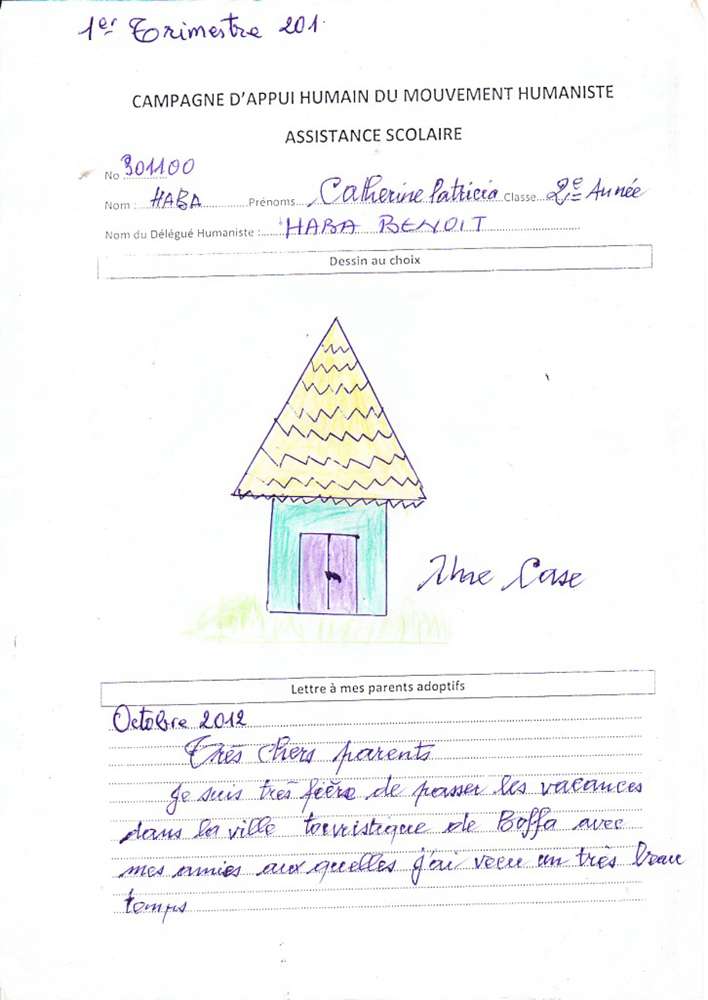 1er Trimestre 201
CAMPAGNE D'APPUI HUMAIN DU MOUVEMENT HUMANISTE
ASSISTANCE SCOLAIRE
No 301100
Nom : HABA Prénoms Catherine Patricia Classe 2e Année
Nom du Délégué Humaniste : HABA BENOIT
Dessin au choix
Une Case
Lettre à mes parents adoptifs
Octobre 2012
Très chers parents
Je suis très fière de passer les vacances
dans la ville touristique de Boffa avec
mes amies aux quelles j'ai vecu un très beau
temps